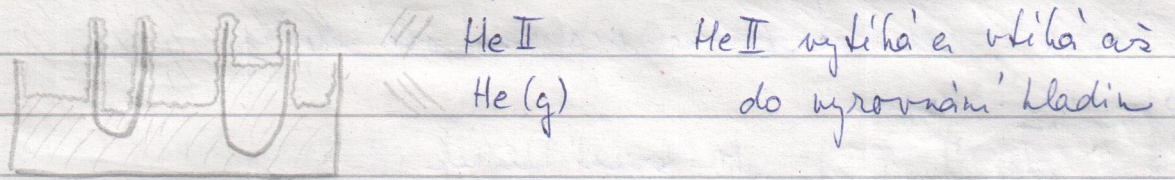 He II He II vytéká a vtéká až
He (g) do vyrovnání hladin